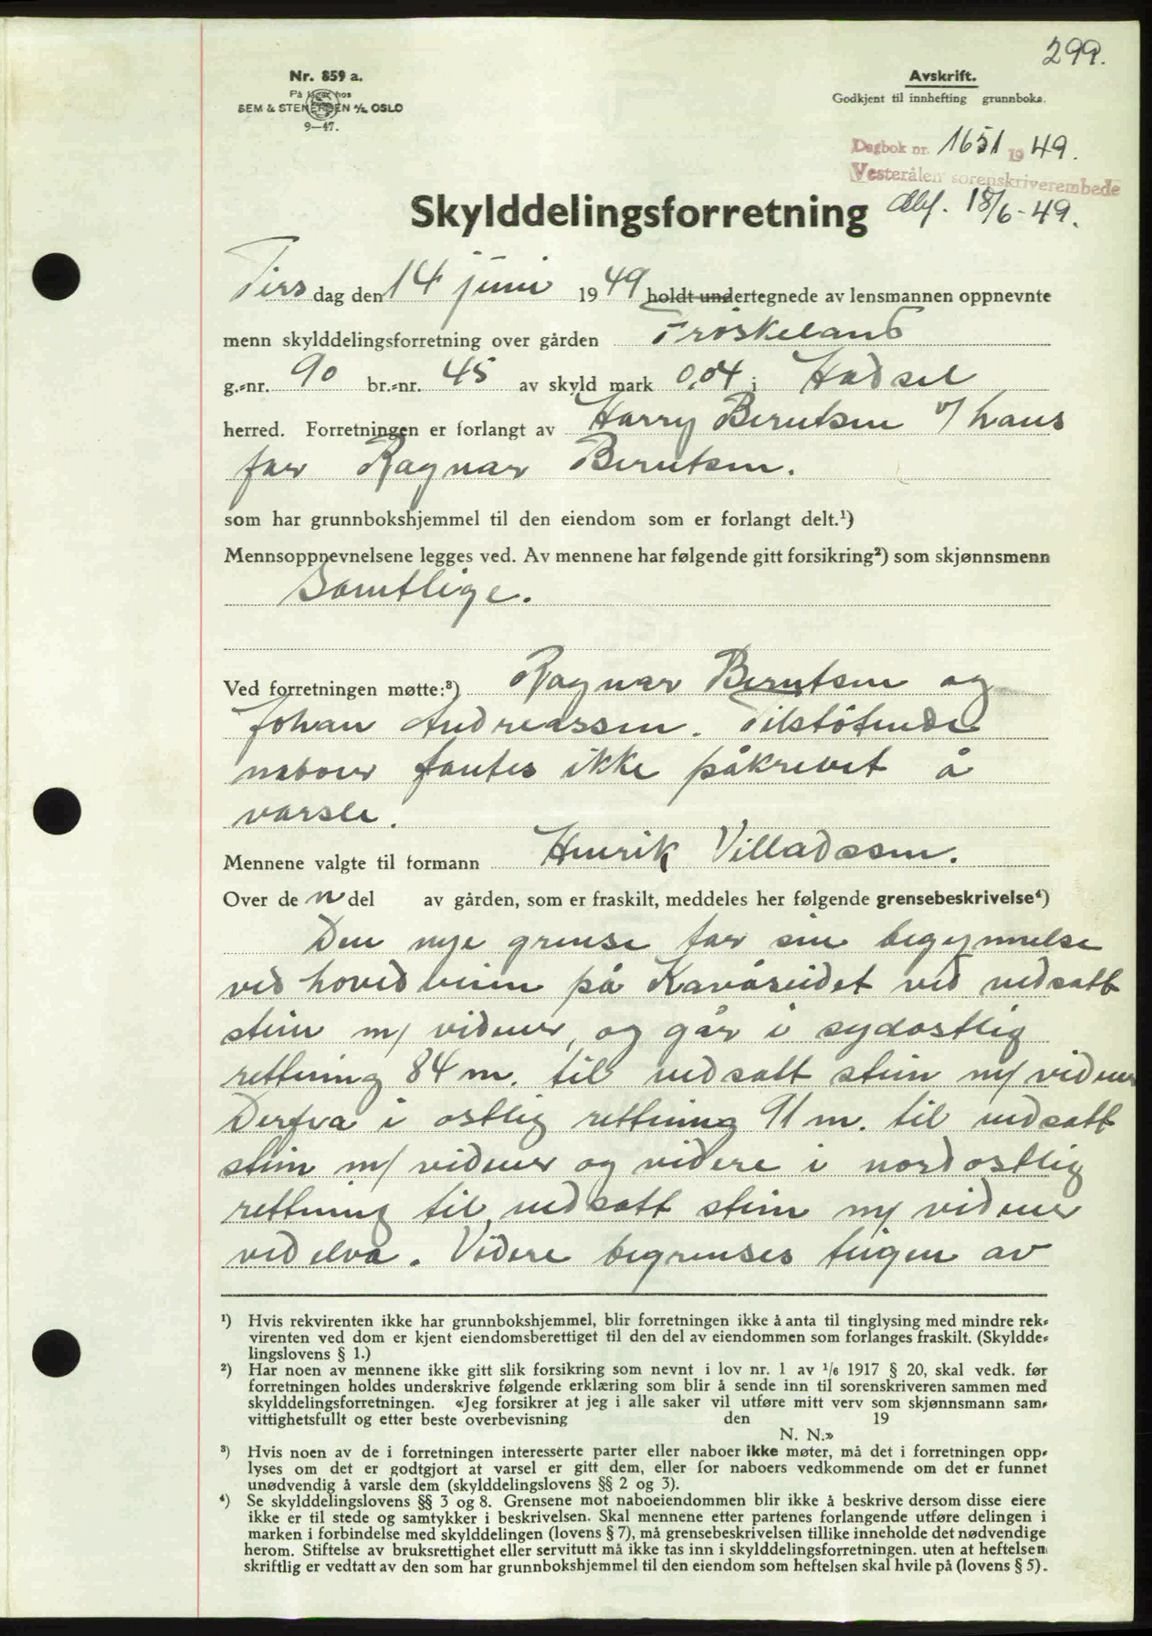 299.
Nr. 859 a.
På lager hos
SEM & STENERSEN A/S, OSLO
9—47.
Avskrift.
Godkjent til innhefting grunnboka.
Dagbok nr. 1651 1949.
Vesterålen sorenskriverembede
18/6-49.
Skylddelingsforretning
Tirsdag den 14 juni 1949 holdt undertegnede av lensmannen oppnevnte
menn skylddelingsforretning over gården Frøskeland
g.-nr. 90 br.-nr. 45 av skyld mark 0,04 i Hadsel
herred. Forretningen er forlangt av Harry Berntsen v/ hans
far Ragnar Berntsen.
som har grunnbokshjemmel til den eiendom som er forlangt delt.¹)
Mennsoppnevnelsene legges ved. Av mennene har følgende gitt forsikring²) som skjønnsmenn
Samtlige.
Ved forretningen møtte:³) Ragnar Berntsen og
Johan Andreassen. Tilstøtende
naboer fantes ikke påkrevet å
varsle.
Mennene valgte til formann Henrik Villadssen.
Over de n del av gården, som er fraskilt, meddeles her følgende grensebeskrivelse⁴)
Den nye grense tar sin begynnelse
ved hovedveien på Kavåseidet ved nedsatt
stein m/ vidner, og går i sydøstlig
retning 84 m. til nedsatt stein m/ vidner
Derfra i østlig retning 91 m. til nedsatt
stein m/ vidner og videre i nordøstlig
retning til nedsatt stein m/ vidner
ved elva. Videre begrenses teigen av
¹) Hvis rekvirenten ikke har grunnbokshjemmel, blir forretningen ikke å anta til tinglysing med mindre rek-
virenten ved dom er kjent eiendomsberettiget til den del av eiendommen som forlanges fraskilt. (Skyldde-
lingslovens § 1.)
²) Har noen av mennene ikke gitt slik forsikring som nevnt i lov nr. 1 av 1/6 1917 § 20, skal vedk. før
forretningen holdes underskrive følgende erklæring som blir å sende inn til sorenskriveren sammen med
skylddelingsforretningen. «Jeg forsikrer at jeg i alle saker vil utføre mitt verv som skjønnsmann sam-
vittighetsfullt og etter beste overbevisning den 19
N. N.»
³) Hvis noen av de i forretningen interesserte parter eller naboer ikke møter, må det i forretningen opp-
lyses om det er godtgjort at varsel er gitt dem, eller for naboers vedkommende om det er funnet
unødvendig å varsle dem (skylddelingslovens §§ 2 og 3).
⁴) Se skylddelingslovens §§ 3 og 8. Grensene mot naboeiendommen blir ikke å beskrive dersom disse eiere
ikke er til stede og samtykker i beskrivelsen. Skal mennene etter partenes forlangende utføre delingen i
marken i forbindelse med skylddelingen (lovens § 7), må grensebeskrivelsen tillike inneholde det nødvendige
herom. Stiftelse av bruksrettighet eller servitutt må ikke tas inn i skylddelingsforretningen, uten at heftelsen
skriftlig er vedtatt av den som har grunnbokshjemmel til den eiendom som heftelsen skal hvile på (lovens § 5).